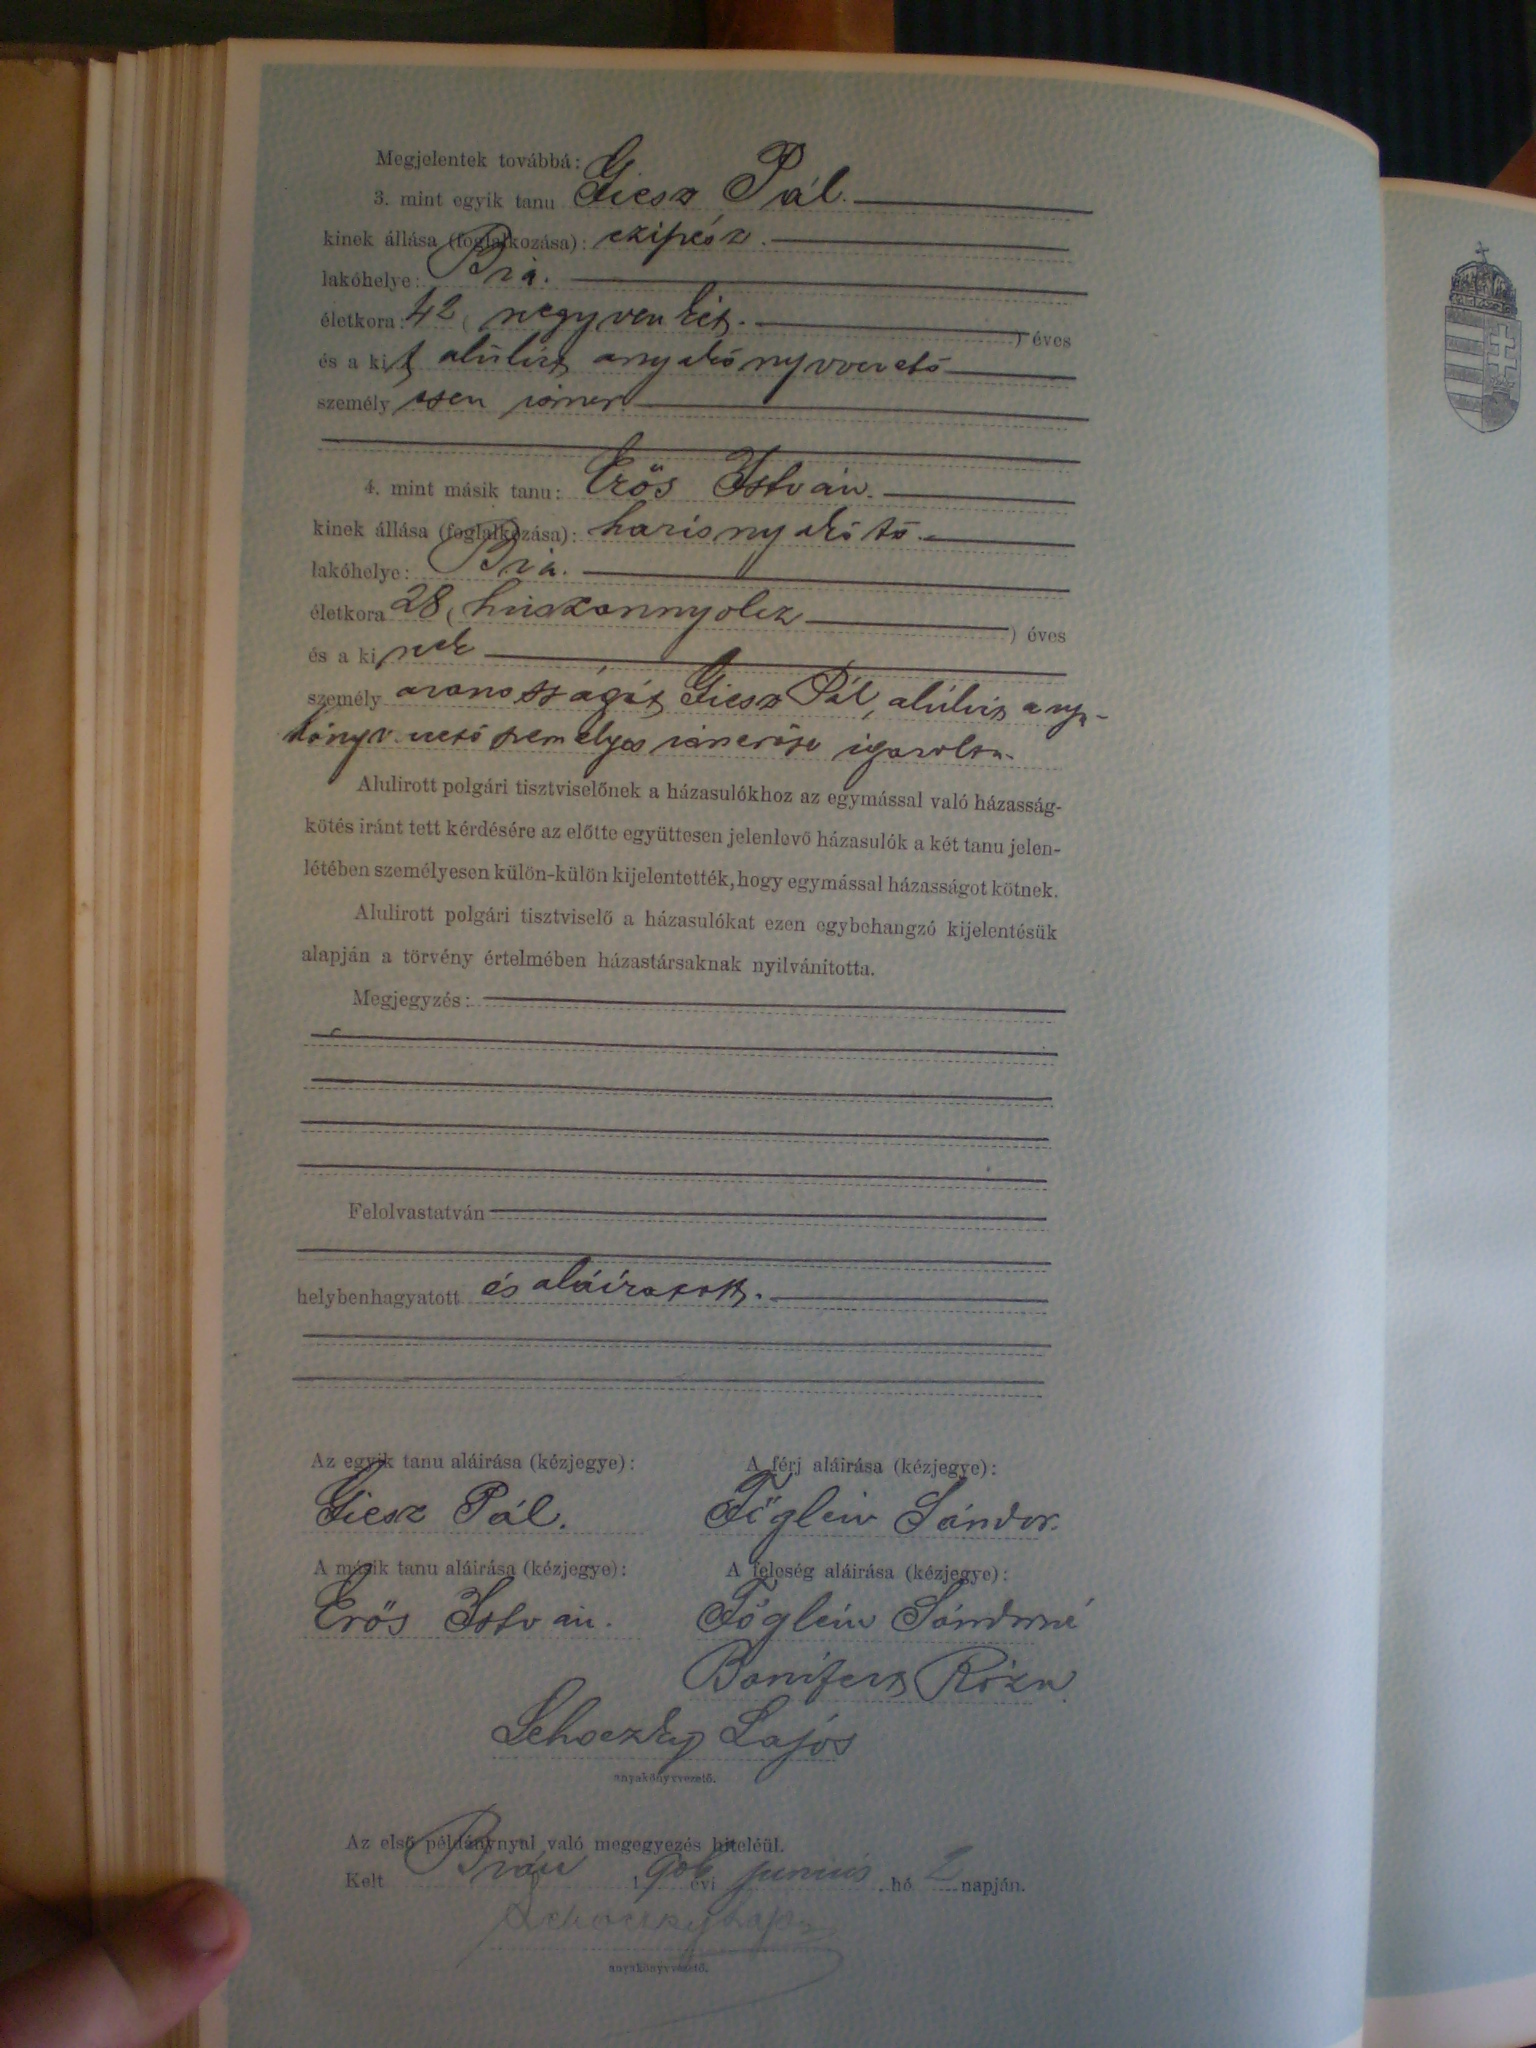 Megjelentek továbbá:
3. mint egyik tanu Giesz Pál.
kinek állása (foglalkozása): czipész.
lakóhelye: Bia.
életkora: 42 ( negyvenkét. ) éves
és a kit alúlírt anyakönyvvezető
személyesen ismer.
4. mint másik tanu: Erős István.
kinek állása (foglalkozása): harisnyakötő.
lakóhelye: Bia.
életkora 28 ( huszonnyolcz ) éves
és a kinek
személyazonosságát Giesz Pál, alúlírt anya-
könyvvezető személyes ismerőse igazolta.
Alulirott polgári tisztviselőnek a házasulókhoz az egymással való házasság-
kötés iránt tett kérdésére az előtte együttesen jelenlevő házasulók a két tanu jelen-
létében személyesen külön-külön kijelentették, hogy egymással házasságot kötnek.
Alulirott polgári tisztviselő a házasulókat ezen egybehangzó kijelentésük
alapján a törvény értelmében házastársaknak nyilvánitotta.
Megjegyzés:
Felolvastatván
helybenhagyatott és aláíratott.
Az egyik tanu aláirása (kézjegye): A férj aláirása (kézjegye):
Giesz Pál. Főglein Sándor.
A másik tanu aláirása (kézjegye): A feleség aláirása (kézjegye):
Erős István. Főglein Sándorné
Bonifert Róza
Schoczky Lajos
anyakönyvvezető.
Az első példánynyal való megegyezés hiteléül.
Kelt Bián 1906 évi junius hó 2 napján.
Schoczky Lajos
anyakönyvvezető.